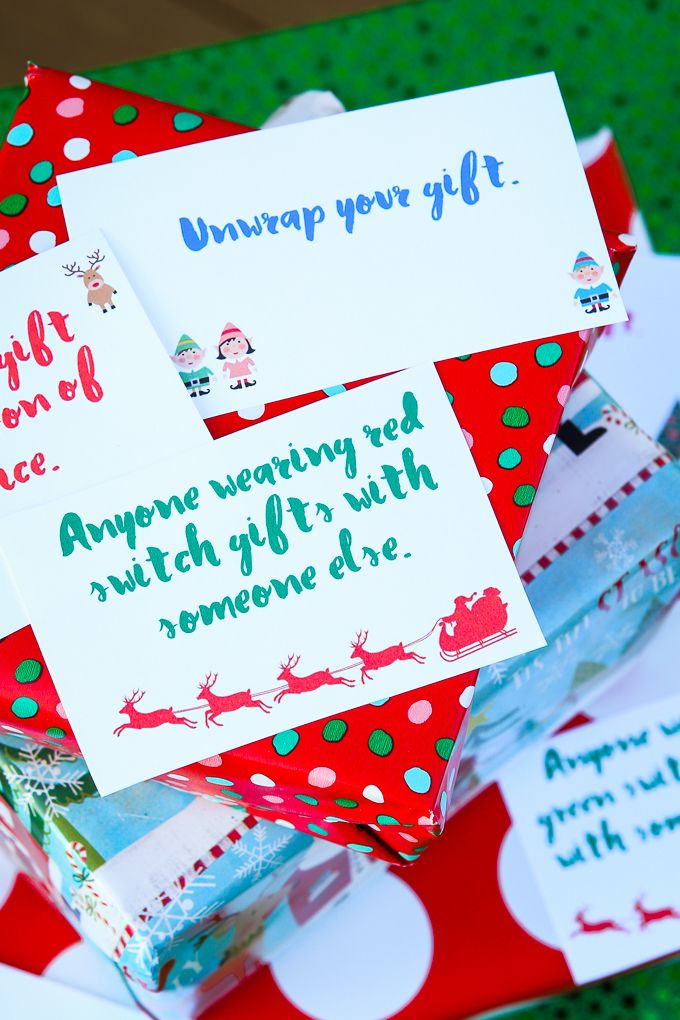 Unwrap your gift.
gift
on of
nce.
Anyone wearing red
switch gifts with
someone else.
Anyone w
green swit
with som